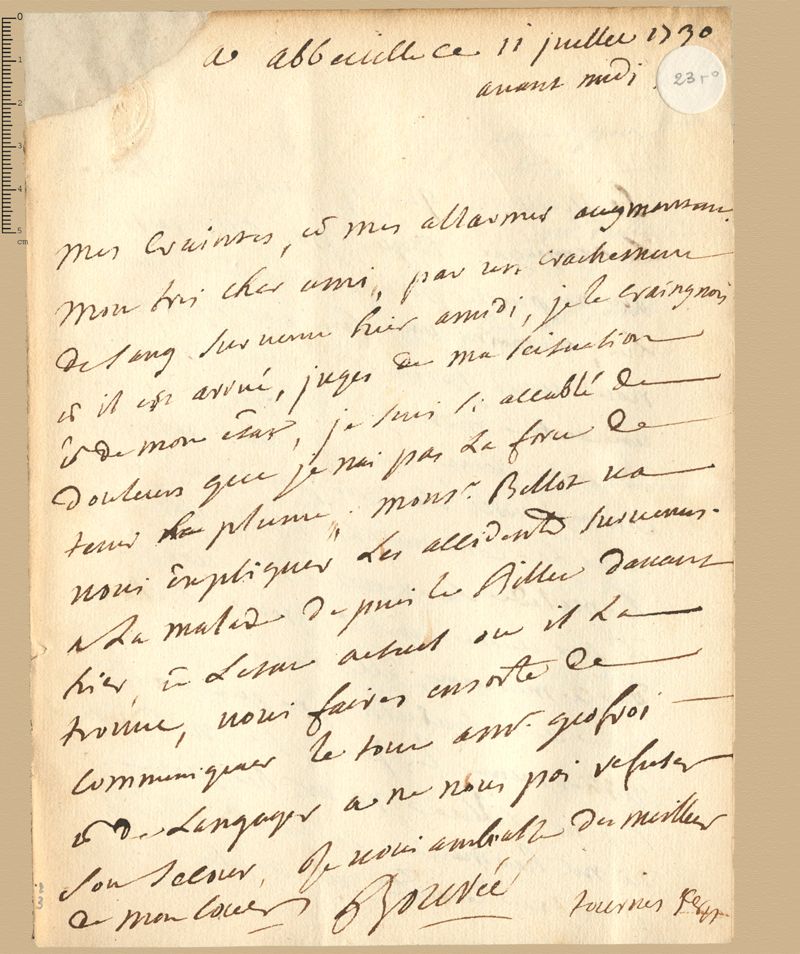 a abbeuille ce 11 juillet 1730
auant midi
23 r°
mes craintes, et mes allarmes augmentent
mon tres cher ami, par un crachement
de sang suruenu hier amidi, je le craignois
et il est arriué, juges de ma scituation
et de mon état, je suis si accablé de
douleurs que je nai pas la force de
tenir la plume. mons.r Bellot va
vous expliquer les accidents suruenus
a la malade depuis le Billet dauant
hier, et letat actuel ou il la
trouue, vous faires ensorte de
communiquer le tout a mr. geofroi
et de langager a ne nous pas refuser
son secour, je vous ambrasse du meilleur
de mon coeur Bouvée
tournes